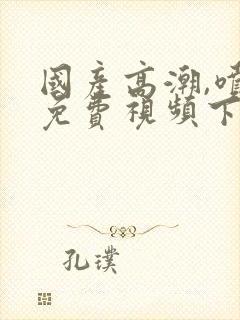 國産高潮,噴
免費視頻下
孔璞